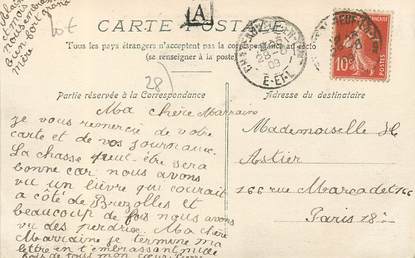 A
CARTE POSTALE
Tous les pays étrangers n'acceptent pas la correspondance au recto
(se renseigner à la poste)
28
lot
Partie réservée à la Correspondance
Adresse du destinataire
E-ET-L
10c
Ma chère Marraine
je vous remercie de votre
carte et de vos journaux.
La chasse peut-être sera
bonne car nous avons
vu un livre qui courait
a côté de Buzolles et
beaucoup de fois nous avons
vu des perdrix. Ma chère
Marraine je termine ma
lettre en t'embrassant mille
fois de tous mon cœur
nous
mère
Mademoiselle H.
Astier
166 rue Marcadet 166
Paris 18e